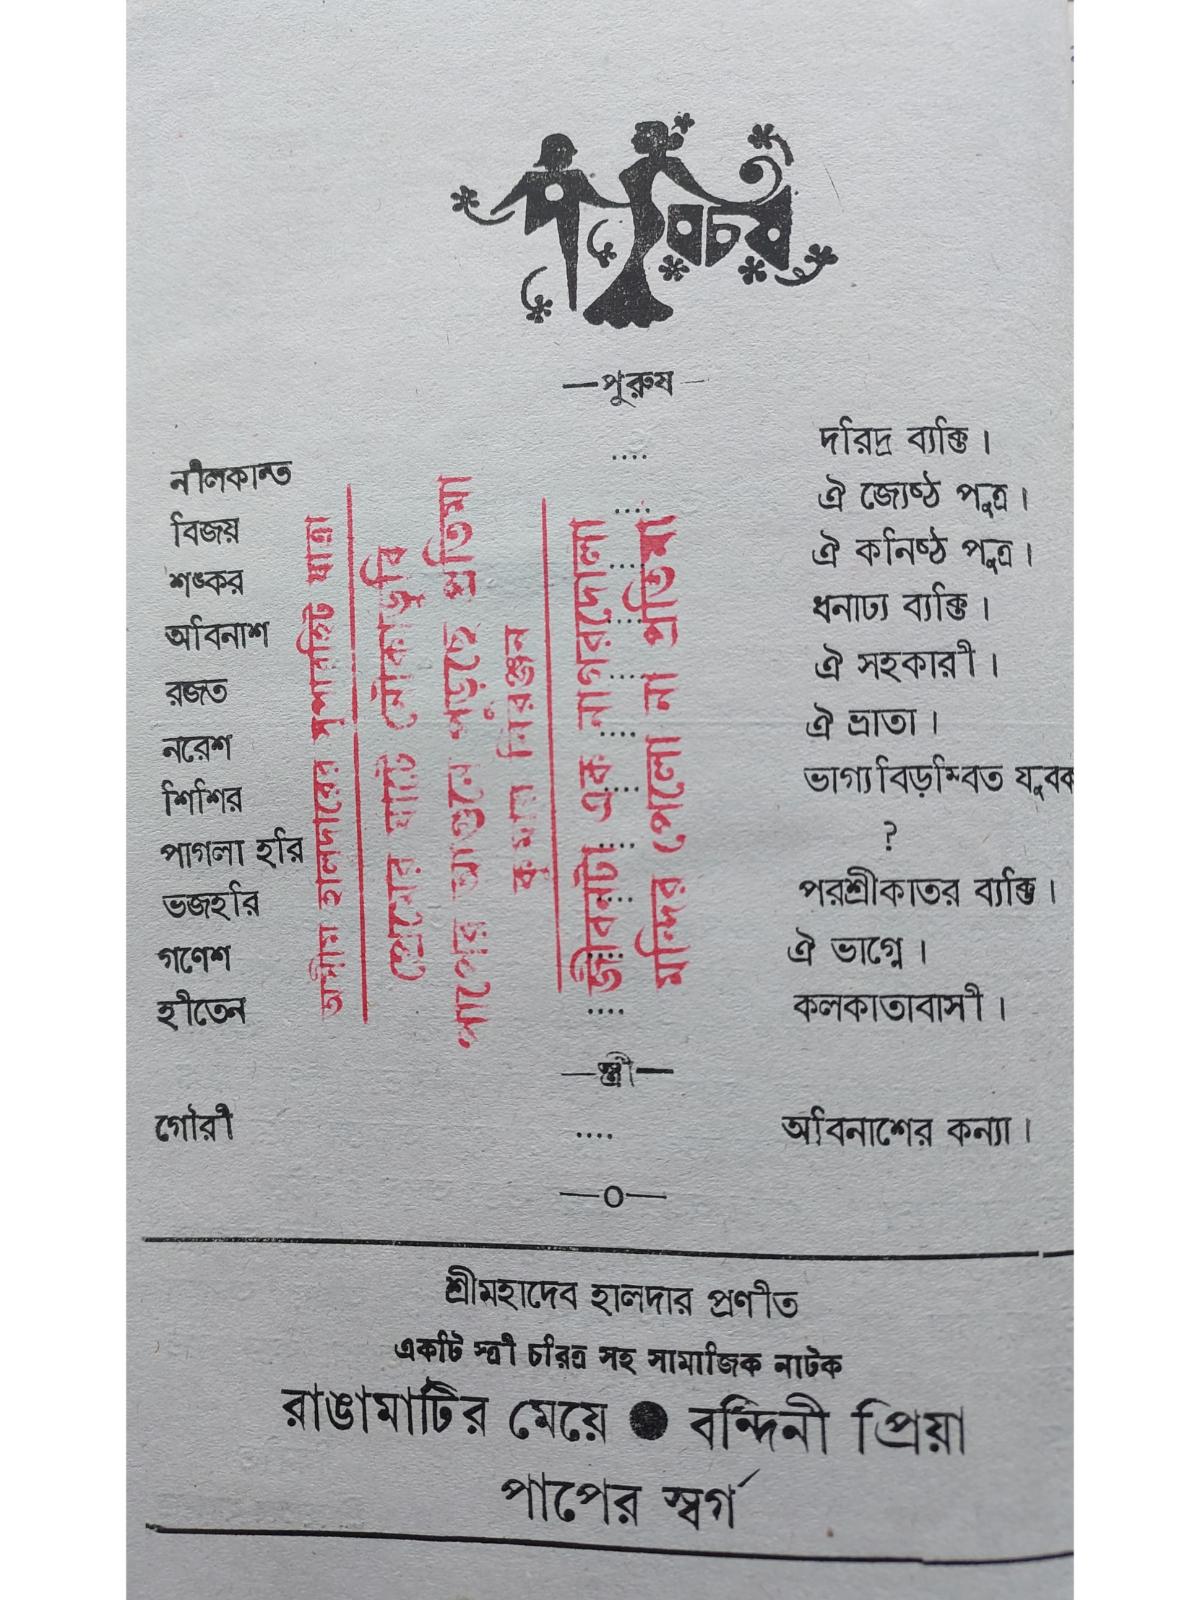 পরিচয়
—পুরুষ—
নীলকান্ত .... দরিদ্র ব্যক্তি।
বিজয় .... ঐ জ্যেষ্ঠ পুত্র।
শঙ্কর .... ঐ কনিষ্ঠ পুত্র।
অবিনাশ .... ধনাঢ্য ব্যক্তি।
রজত .... ঐ সহকারী।
নরেশ .... ঐ ভ্রাতা।
শিশির .... ভাগ্যবিড়ম্বিত যুবক
পাগলা হরি .... ?
ভজহরি .... পরশ্রীকাতর ব্যক্তি।
গণেশ .... ঐ ভাগ্নে।
হীতেন .... কলকাতাবাসী।
—স্ত্রী—
গৌরী .... অবিনাশের কন্যা।
—০—
অসীম হালদারের সুপারহিট যাত্রা
প্রেমের ঘাটে নৌকাডুবি
পাপের আগুনে পুড়ছে প্রতিমা
কুমার নিরঞ্জন
জীবনটা এক নাগরদোলা
মন্দির পেলো না প্রতিমা
শ্রীমহাদেব হালদার প্রণীত
একটি স্ত্রী চরিত্র সহ সামাজিক নাটক
রাঙামাটির মেয়ে ● বন্দিনী প্রিয়া
পাপের স্বর্গ